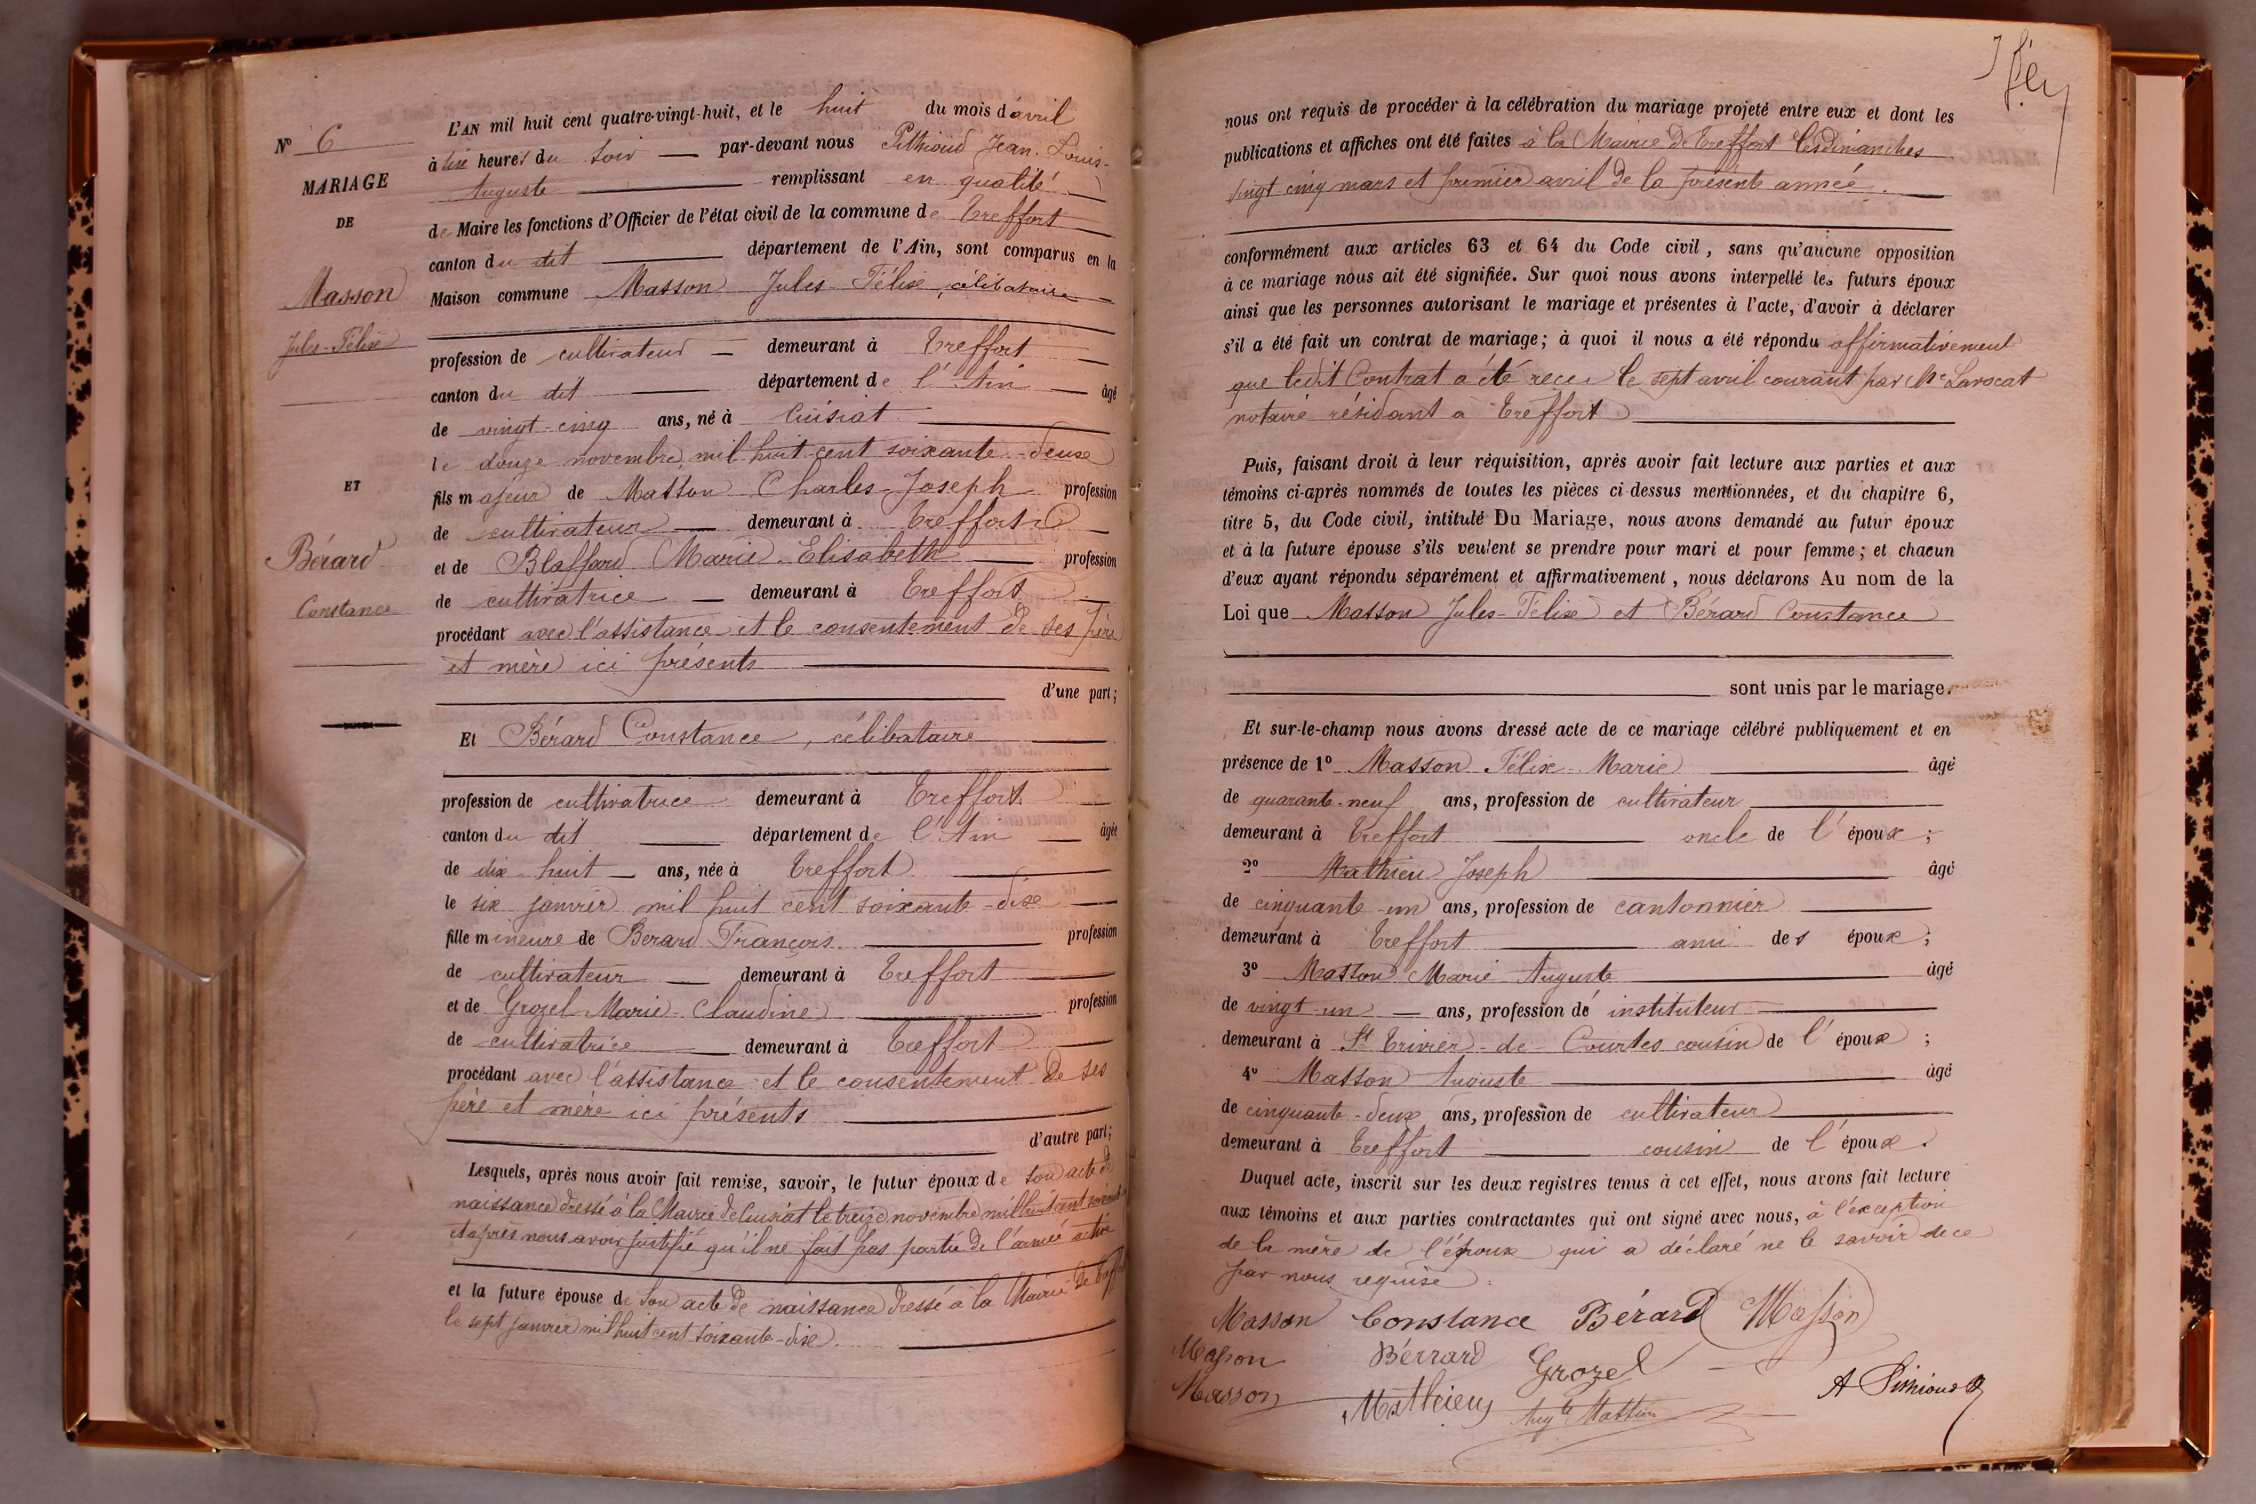 N° 6
MARIAGE
DE
Masson
Jules-Félix
ET
Bérard
Constance
L'AN mil huit cent quatre-vingt-huit, et le huit du mois d'avril
à six heures du soir par-devant nous Pithioud Jean-Louis-
Auguste remplissant en qualité
de Maire les fonctions d'Officier de l'état civil de la commune de Treffort
canton du dit département de l'Ain, sont comparus en la
Maison commune Masson Jules-Félix, célibataire
profession de cultivateur demeurant à Treffort
canton du dit département de l'Ain âgé
de vingt-cinq ans, né à Cuisiat
le douze novembre mil huit cent soixante-deux
fils majeur de Masson Charles-Joseph profession
de cultivateur demeurant à Treffort
et de Blaffard Marie-Elisabeth profession
de cultivatrice demeurant à Treffort
procédant avec l'assistance et le consentement de ses père
et mère ici présents
d'une part;
Et Bérard Constance, célibataire
profession de cultivatrice demeurant à Treffort
canton du dit département de l'Ain âgée
de dix-huit ans, née à Treffort
le six janvier mil huit cent soixante-dix
fille mineure de Berard François profession
de cultivateur demeurant à Treffort
et de Grozel Marie-Claudine profession
de cultivatrice demeurant à Treffort
procédant avec l'assistance et le consentement de ses
père et mère ici présents
d'autre part;
Lesquels, après nous avoir fait remise, savoir, le futur époux de son acte de
naissance dressé à la Mairie de Cuisiat le treize novembre mil huit cent soixante
et après nous avoir justifié qu'il ne fait pas partie de l'armée active
et la future épouse de son acte de naissance dressé à la Mairie de Treffort
le sept janvier mil huit cent soixante-dix.
nous ont requis de procéder à la célébration du mariage projeté entre eux et dont les
publications et affiches ont été faites à la Mairie de Treffort les dimanches
vingt cinq mars et premier avril de la présente année.
conformément aux articles 63 et 64 du Code civil, sans qu'aucune opposition
à ce mariage nous ait été signifiée. Sur quoi nous avons interpellé les futurs époux
ainsi que les personnes autorisant le mariage et présentes à l'acte, d'avoir à déclarer
s'il a été fait un contrat de mariage; à quoi il nous a été répondu affirmativement
que ledit Contrat a été reçu le sept avril courant par Me Lavocat
notaire résidant à Treffort
Puis, faisant droit à leur réquisition, après avoir fait lecture aux parties et aux
témoins ci-après nommés de toutes les pièces ci-dessus mentionnées, et du chapitre 6,
titre 5, du Code civil, intitulé Du Mariage, nous avons demandé au futur époux
et à la future épouse s'ils veulent se prendre pour mari et pour femme; et chacun
d'eux ayant répondu séparément et affirmativement, nous déclarons Au nom de la
Loi que Masson Jules-Félix et Bérard Constance
sont unis par le mariage.
Et sur-le-champ nous avons dressé acte de ce mariage célébré publiquement et en
présence de 1° Masson Félix-Marie âgé
de quarante-neuf ans, profession de cultivateur
demeurant à Treffort oncle de l'époux;
2° Mathieu Joseph âgé
de cinquante-un ans, profession de cantonnier
demeurant à Treffort ami des époux;
3° Masson Marie-Auguste âgé
de vingt-un ans, profession de instituteur
demeurant à St Trivier-de-Courtes cousin de l'époux;
4° Masson Auguste âgé
de cinquante-deux ans, profession de cultivateur
demeurant à Treffort cousin de l'époux.
Duquel acte, inscrit sur les deux registres tenus à cet effet, nous avons fait lecture
aux témoins et aux parties contractantes qui ont signé avec nous, à l'exception
de la mère de l'époux qui a déclaré ne le savoir de ce
par nous requise.
Masson Constance Bérard Masson
Masson Bérrard Grozel
Masson Mathieu Augte Masson A Pithioud